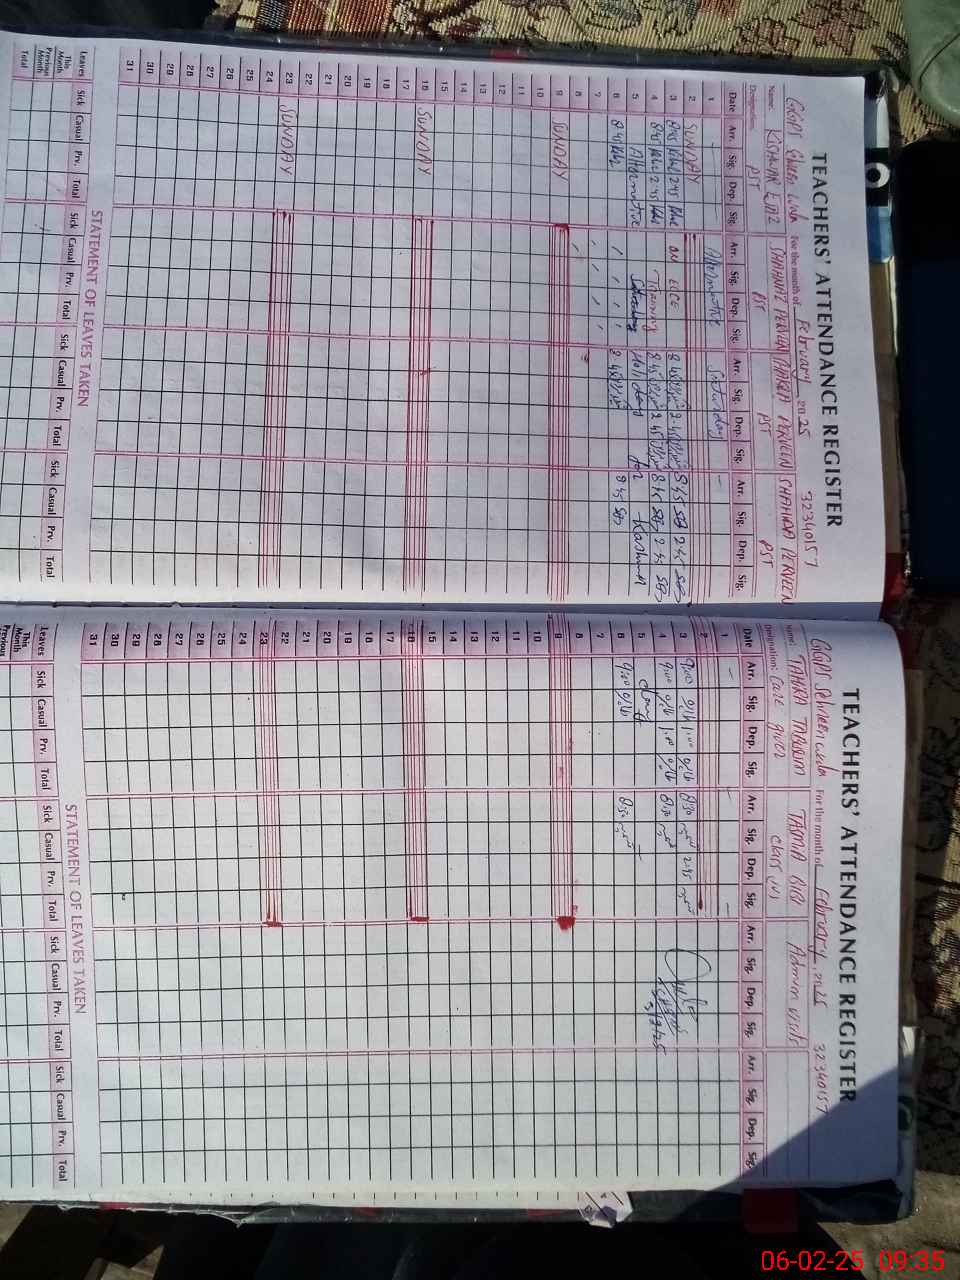 TEACHERS' ATTENDANCE REGISTER
For the month of February 2025 32340157
Name: KISHWAR SHAHNAZ PERVEEN PERVEEN SHAHIDA PERVEEN
Designation: PST PST PST PST
Date Arr. Sig. Dep. Sig. Arr. Sig. Dep. Sig. Arr. Sig. Dep. Sig. Arr. Sig. Dep. Sig.
1 Alternative Saturday
2 SUNDAY
3 8:45 2:45 ON ECCE 8:45 2:45 8:45 2:45
4 8:45 2:45 Training 8:45 2:45 8:45 2:45
5 Alternative Saturday Holiday for Kashmir
6 8:45 8:45 8:45
7
8
9 SUNDAY
10
11
12
13
14
15
16 SUNDAY
17
18
19
20
21
22
23 SUNDAY
24
25
26
27
28
29
30
31
STATEMENT OF LEAVES TAKEN
Leaves Sick Casual Prv. Total Sick Casual Prv. Total Sick Casual Prv. Total Sick Casual Prv. Total
This Month
Previous Month
Total
TEACHERS' ATTENDANCE REGISTER
For the month of February, 2025 32340157
Name: TAHIRA TABSUM TASMIA BIBI Admin visits
Designation: Care giver Class IV
Date Arr. Sig. Dep. Sig. Arr. Sig. Dep. Sig. Arr. Sig. Dep. Sig. Arr. Sig. Dep. Sig.
1
2
3 9:00 1:00 8:30 2:45
4 9:00 1:00 8:30 3/2/25
5
6 9:00 8:30
7
8
9
10
11
12
13
14
15
16
17
18
19
20
21
22
23
24
25
26
27
28
29
30
31
STATEMENT OF LEAVES TAKEN
Leaves Sick Casual Prv. Total Sick Casual Prv. Total Sick Casual Prv. Total Sick Casual Prv. Total
This Month
Previous
06-02-25 09:35